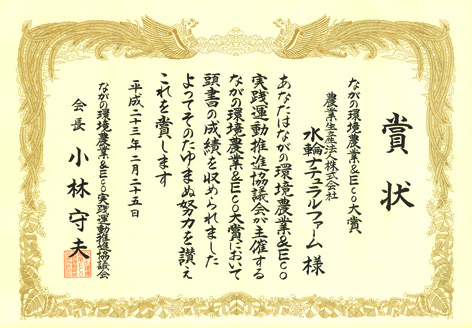 賞状
ながの環境農業&Eco大賞
農業生産法人株式会社
水輪ナチュラルファーム 様
あなたはながの環境農業&Eco
実践運動推進協議会が主催する
ながの環境農業&Eco大賞において
頭書の成績を収められました
よってそのたゆまぬ努力を讃え
これを賞します
平成二十三年二月二十五日
ながの環境農業&Eco実践運動推進協議会
会長 小林守夫